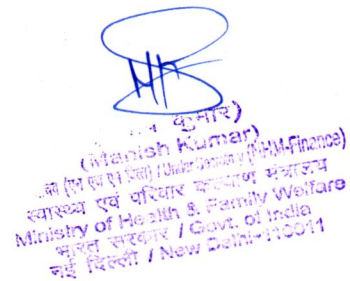 कुमार)
(Manish Kumar)
(एन एच एम वित्त) / Under Secretary (NHM-Finance)
स्वास्थ्य एवं परिवार कल्याण मंत्रालय
Ministry of Health & Family Welfare
भारत सरकार / Govt. of India
नई दिल्ली / New Delhi-110011